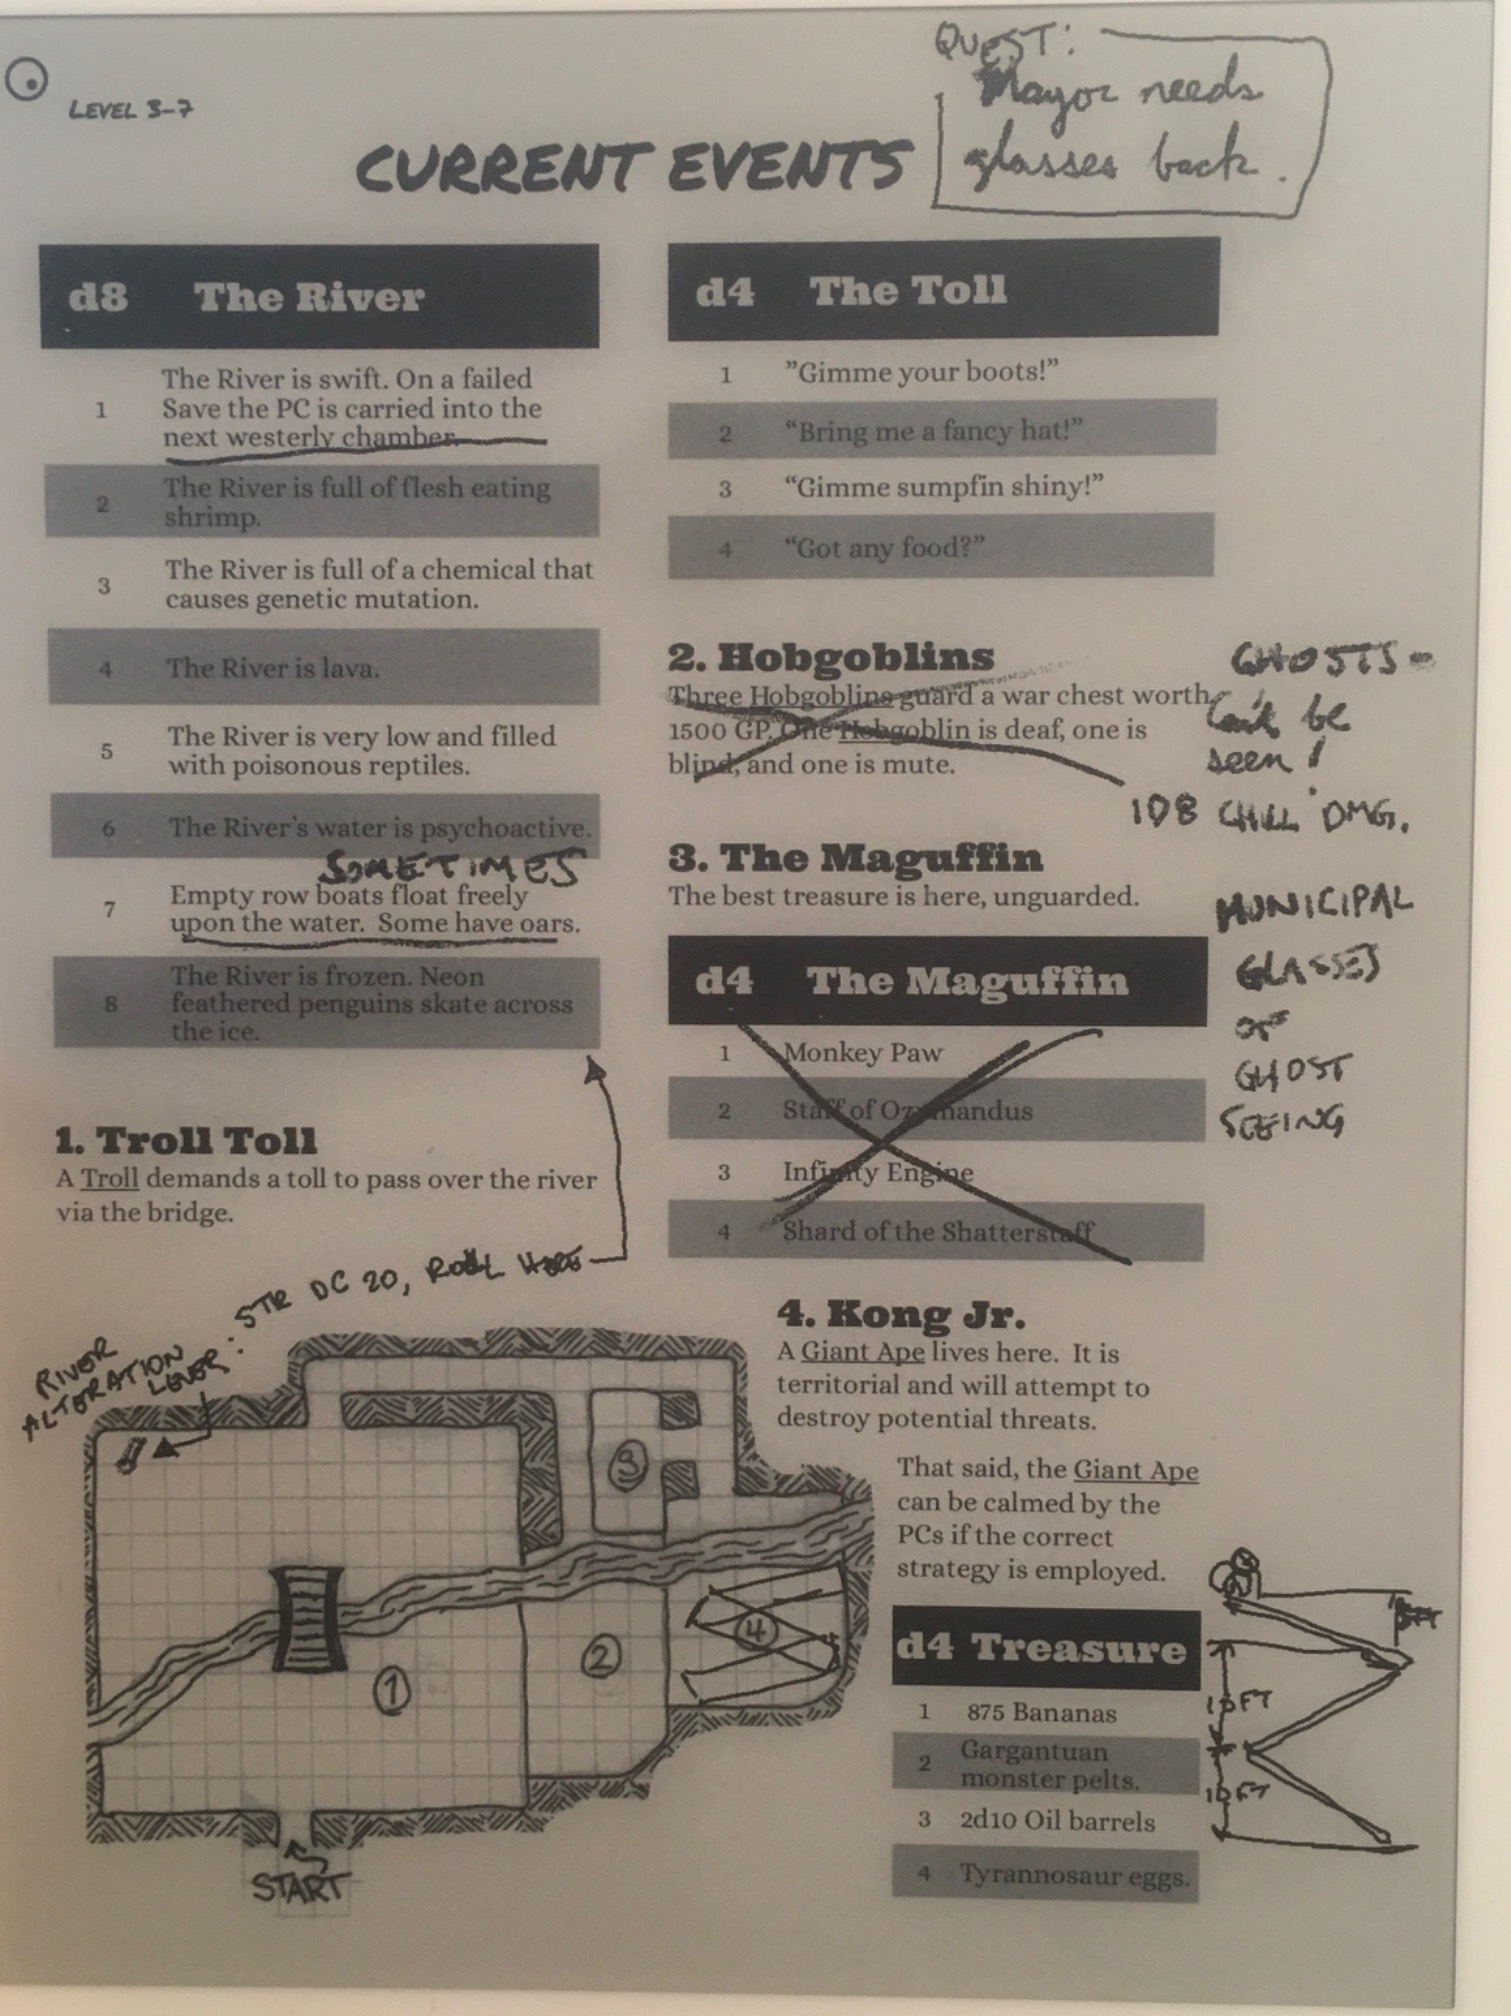 LEVEL 3-7
QUEST:
Mayor needs
glasses back.
CURRENT EVENTS
d8 The River
1 The River is swift. On a failed
Save the PC is carried into the
next westerly chamber.
2 The River is full of flesh eating
shrimp.
3 The River is full of a chemical that
causes genetic mutation.
4 The River is lava.
5 The River is very low and filled
with poisonous reptiles.
6 The River's water is psychoactive.
SOMETIMES
7 Empty row boats float freely
upon the water. Some have oars.
8 The River is frozen. Neon
feathered penguins skate across
the ice.
1. Troll Toll
A Troll demands a toll to pass over the river
via the bridge.
RIVER
ALTERATION
LEVER: STR DC 20, ROLL HERE
1
2
3
4
START
d4 The Toll
1 ”Gimme your boots!”
2 “Bring me a fancy hat!”
3 “Gimme sumpfin shiny!”
4 “Got any food?”
2. Hobgoblins
Three Hobgoblins guard a war chest worth
1500 GP. One Hobgoblin is deaf, one is
blind, and one is mute.
GHOSTS-
Can't be
seen!
1D8 CHILL DMG.
3. The Maguffin
The best treasure is here, unguarded.
MUNICIPAL
GLASSES
OF
GHOST
SEEING
d4 The Maguffin
1 Monkey Paw
2 Staff of Ozymandus
3 Infinity Engine
4 Shard of the Shatterstaff
4. Kong Jr.
A Giant Ape lives here. It is
territorial and will attempt to
destroy potential threats.
That said, the Giant Ape
can be calmed by the
PCs if the correct
strategy is employed.
d4 Treasure
1 875 Bananas
2 Gargantuan
monster pelts.
3 2d10 Oil barrels
4 Tyrannosaur eggs.
10FT
10FT